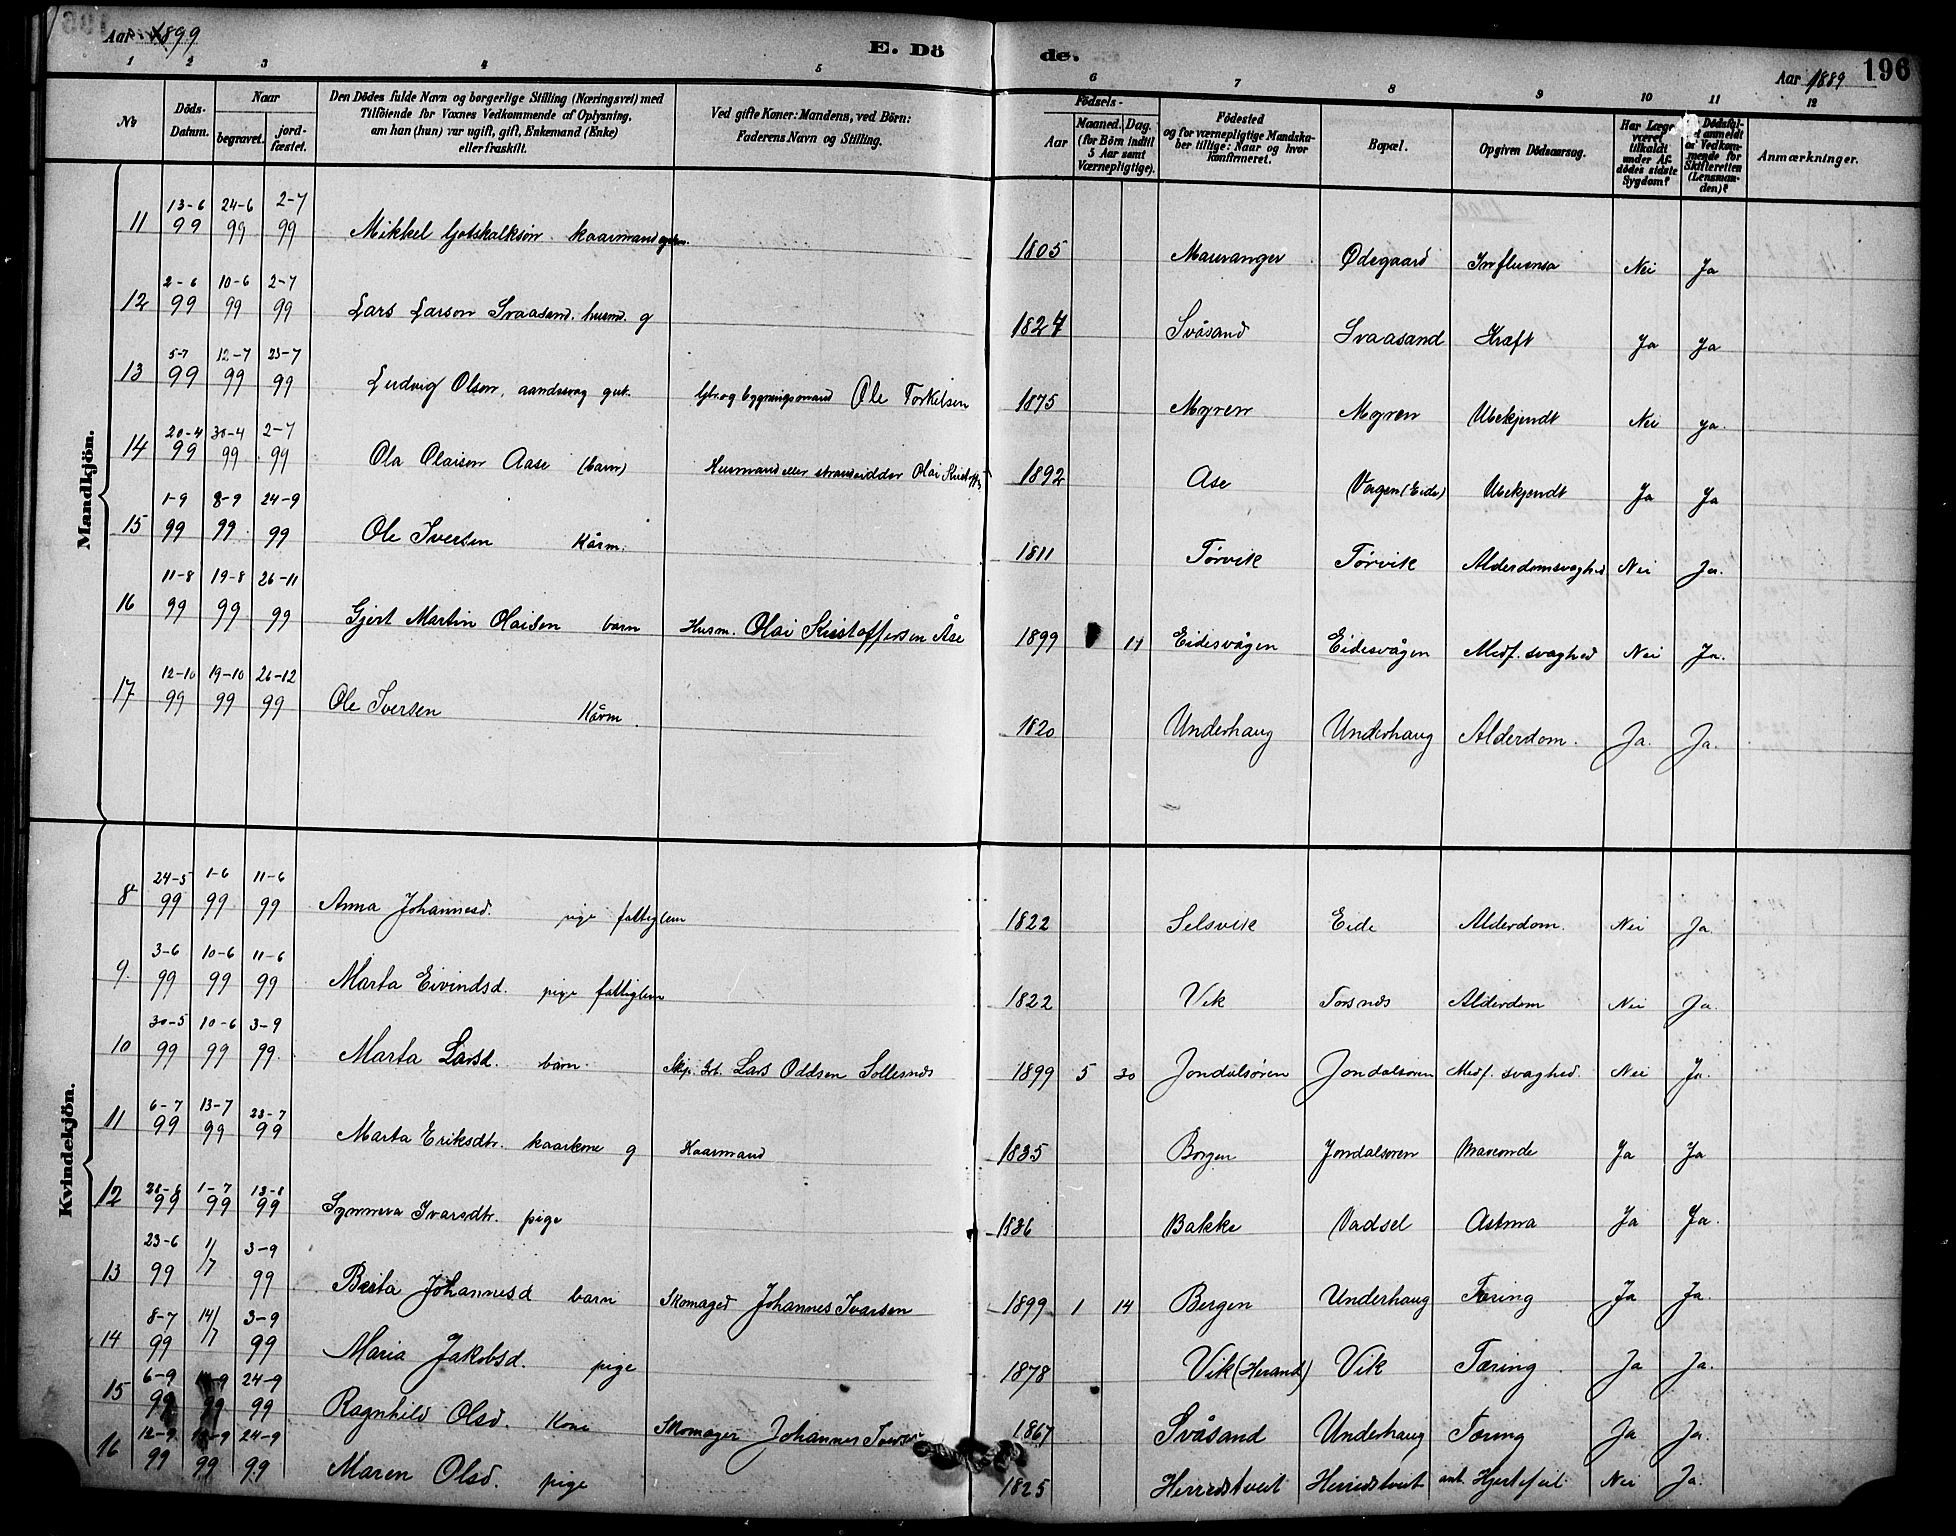 Aar 1899
E. Dö
de.
Aar 1889
196
1 2 3 4 5 6 7 8 9 10 11 12
No
Döds-Datum.
Naar
begravet.
jord-fæstet.
Den Dödes fulde Navn og borgerlige Stilling (Næringsvei) med
Tilföiende for Voxnes Vedkommende af Oplysning,
om han (hun) var ugift, gift, Enkemand (Enke)
eller fraskilt.
Ved gifte Koner: Mandens, ved Börn:
Faderens Navn og Stilling.
Födsels-
Aar
Maaned. Dag.
(for Börn indtil
5 Aar samt
Værnepligtige).
Födested
og for værnepligtige Mandska-
ber tillige: Naar og hvor
konfirmeret.
Bopæl.
Opgiven Dödsaarsag.
Har Læge
været
tilkaldt
under Af-
dödes sidste
Sygdom?
Dödsfal-
anmeldt
Vedkom-
mende for
Skifteretten
(Lensman-
den)?
Anmærkninger.
Mandkjön.
11 13-6 99 24-6 99 2-7 99 Mikkel Gotskalkson kaarmand 1805 Mauranger Ødegaard Influensa Nei Ja
12 2-6 99 10-6 99 2-7 99 Lars Larson Svaasand. husmd. g 1824 Svåsand Svaasand Kræft Ja Ja
13 5-7 99 12-7 99 23-7 99 Ludvig Olson, aandssvag gut. Gbr. og bygningsmand Ole Torkelsen 1875 Myren Myren Ubekjendt Nei Ja.
14 20-4 99 30-4 99 2-7 99 Ola Olaison Aase (barn) Husmand eller strandsidder Olai 1892 Ase Vagen (Eide) Ubekjendt Ja Ja
15 1-9 99 8-9 99 24-9 99 Ole Iversen Kårm. 1811 Tørvik Tørvik Alderdomsvaghed Nei Ja.
16 11-8 99 19-8 99 26-11 99 Gjert Martin Olaisen barn Husm. Olai Kristoffersen Åse 1899 11 Eidesvågen Eidesvågen Medf. svaghed Nei Ja.
17 12-10 99 19-10 99 26-12 99 Ole Iversen Kårm. 1820 Underhaug Underhaug Alderdom. Ja. Ja.
Kvindekjön.
8 24-5 99 1-6 99 11-6 99 Anna Johannesd. pige fattiglem 1822 Selsvik Eide Alderdom. Nei Ja.
9. 3-6 99 10-6 99 11-6 99 Marta Eivindsd. pige fattiglem 1822 Vik Torsnes Alderdom Nei Ja.
10 30-5 99 10-6 99 3-9 99. Marta Larsd. barn. Skp. Lars Oddsen Sollesnes 1899 5 30 Jondalsøren Jondalsøren Medf. svaghed. Nei Ja.
11 6-7 99 13-7 99 23-7 99 Marta Eriksdtr. kaarkone g Kaarmand 1835 Borgen Jondalsøren Ja Ja
12 99 1-7 99 13-8 99 Synneva Ivarsdtr. pige 1836 Bakke Vadsel Astma Ja Ja.
13 23-6 99 1/7 3-9 99 Berta Johannesd barn Skomager Johannes Ivarsen 1899 1 14 Bergen Underhaug Tæring Ja Ja.
14 8-7 99 14/7 3-9 99 Maria Jakobsd. pige 1878 Vik (Herand) Vik Tæring Ja Ja.
15 6-9 99 99 24-9 99 Ragnhild Olsd. Kone Skomager Johannes 1867 Svåsand Underhaug Tæring Ja Ja.
16 12-9 99 99 24-9 99 Maren Olsd. pige 1825 Herredstveit Herredstveit ant. Hjertefeil Nei Ja.